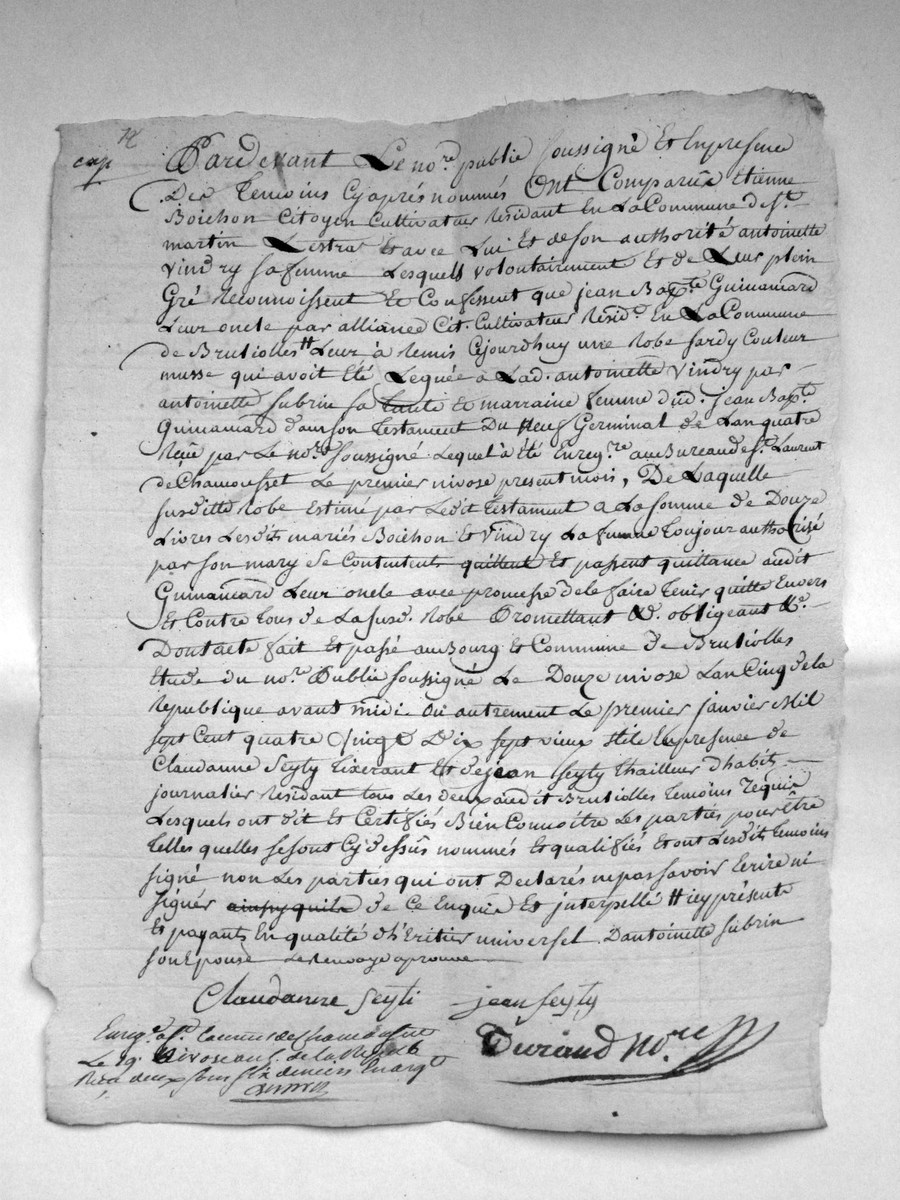 cop
Pardevant Le no.re public soussigné Et En presence
Des Temoins Cyaprés nommés Ont Comparûs Etienne
Boichon Citoyen Cultivateur Residant En La Commune de S.t
martin Lestra Et avec Lui Et de son authorité antoinette
Vindry sa femme Lesquels volontairement Et de Leur plein
Gré Reconnoissent Et Confessent que jean Bap.te Guinamard
Leur oncle par alliance Cit. Cultivateur Resid.t En La Commune
de Brutiolles # Leur à Remis Cejourdhuy une Robe sardy Couleur
musse qui avoit Eté Leguée a Lad. antoinette Vindry par
antoinette subrin sa tante Et marraine femme dud. jean Bap.te
Guinamard dans son Testament Du Neuf Germinal de Lan quatre
Reçu par Le no.re soussigné Lequel à Eté Enreg.re au Bureau de S.t Laurent
de Chamousset Le premier nivose present mois, De Laquelle
susditte Robe Estimé par Ledit Testament a La somme de Douze
Livres Lesdits mariés Boichon Et Vindry La femme Toujour authorisé
par son mary se Contentent quittent Et passent quittance audit
Guinamard Leur oncle avec promesse de le faire Tenir quitte Envers
Et Contre tous de La susd. Robe Promettant &. obligeant &.
Dont acte fait Et passé au Bourg Et Commune de Brutiolles
Etude du no.re Public soussigné Le Douze nivose Lan Cinq de la
Republique avant midi ou autrement Le premier janvier Mil
sept Cent quatre Vingt Dix sept vieux stile En presence de
Claudanne Seyty Tixerant Et de jean seyty thailleur dhabits
journalier Residant tous Les deux audit Brutiolles Temoins Requis
Lesquels ont dit Et Certifiés Bien Connoître Les parties pour Être
telles quelles se sont Cy dessûs nommés Et qualifiés Et ont Lesdits temoins
signé non Les parties qui ont Declarés ne pas savoir Ecrire ni
signér ainsy quils de Ce Enquis Et jnterpellé # icy présente
Et payants En qualité d'hEritier universel Dantoinette subrin
son Epouse Le Renvoy aprouvé
Claudanne Seyti jean seyty
Durand No.re
Enreg.é a S.t Laurent de Chamousset
Le 19 Nivose an 5 de la Rep.
Reçu deux sous six deniers